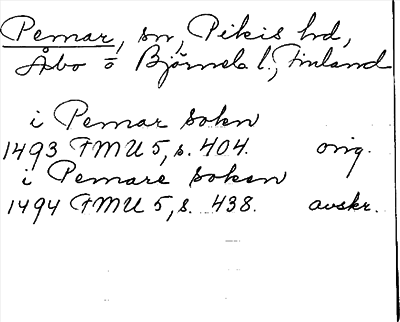 Pemar, sn, Pikis hd,
Åbo o Björneb l., Finland
i Pemar sokn
1493 FMU 5, s. 404. orig.
i Pemare soken
1494 FMU 5, s. 438. avskr.